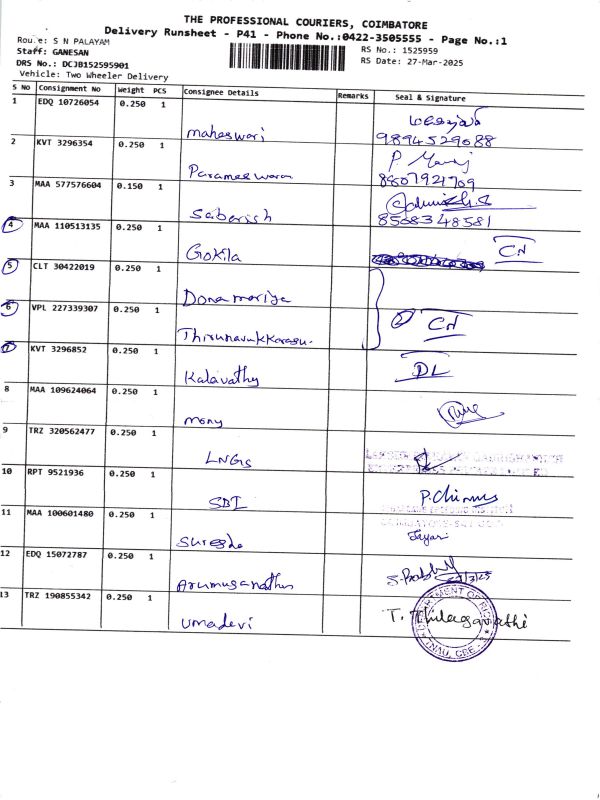 THE PROFESSIONAL COURIERS, COIMBATORE
Delivery Runsheet - P41 - Phone No.:0422-3505555 - Page No.:1
Route: S N PALAYAM
RS No.: 1525959
Staff: GANESAN
RS Date: 27-Mar-2025
DRS No.: DCJB152595901
Vehicle: Two Wheeler Delivery
S No Consignment No Weight PCS Consignee Details Remarks Seal & Signature
1 EDQ 10726054 0.250 1 maheswari 9894529088
2 KVT 3296354 0.250 1 Parameswaran P. Manoj 8807921709
3 MAA 577576604 0.150 1 Sabarish 8558348581
4 MAA 110513135 0.250 1 Gokila CN
5 CLT 30422019 0.250 1 Dona mariya
6 VPL 227339307 0.250 1 Thirunavukkarasu. 2 CN
7 KVT 3296852 0.250 1 Kalavathy DL
8 MAA 109624064 0.250 1 mony
9 TRZ 320562477 0.250 1 LNGS
10 RPT 9521936 0.250 1 SBI
11 MAA 100601480 0.250 1 Suresh Jayari
12 EDQ 15072787 0.250 1 Arumuganathan
13 TRZ 190855342 0.250 1 umadevi T. Thilagavathi
DEPARTMENT OF RICE
TNAU, CBE